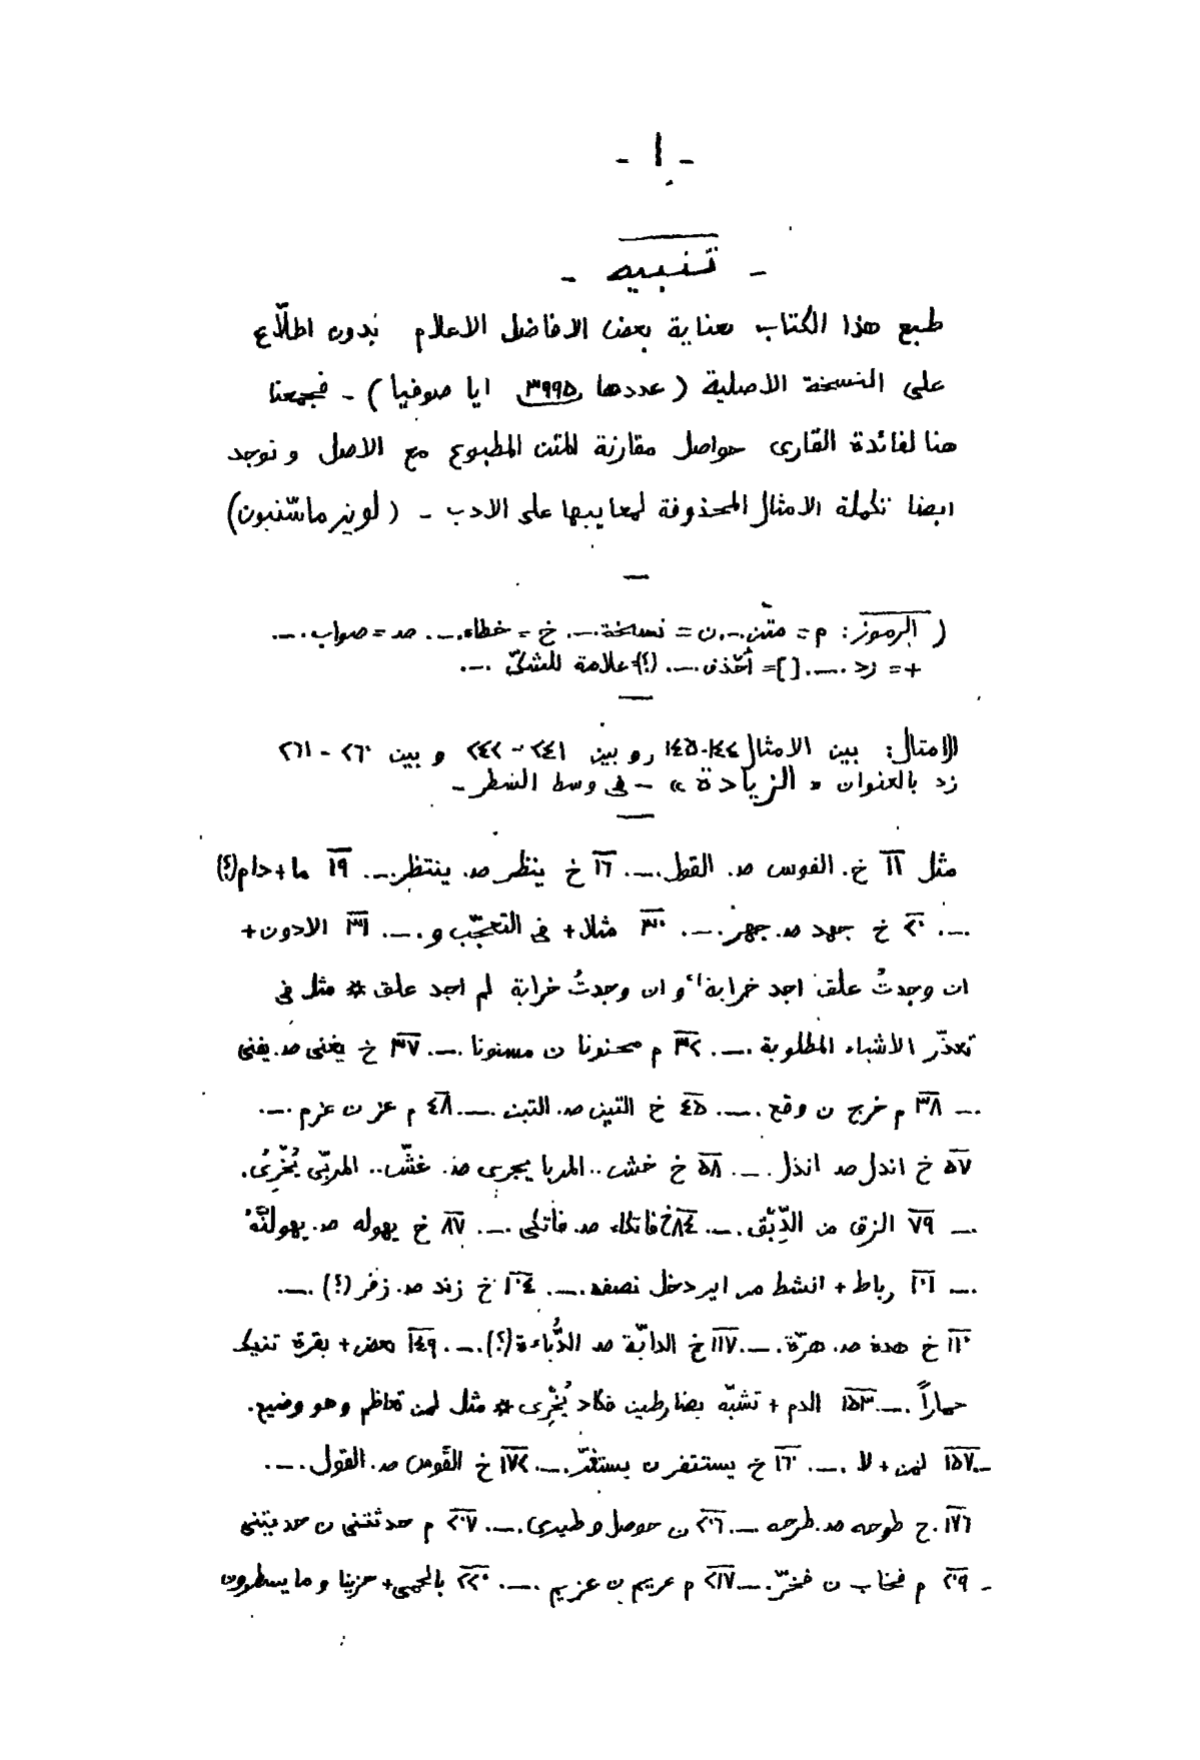 - ١ -
- تنبيه -
طبع هذا الكتاب بعناية بعض الافاضل الاعلام بدون اطلّاع
على النسخة الاصلية ( عددها ٣٩٩٥ ايا صوفيا ) - فجمعنا
هنا لفائدة القارى حواصل مقارنة المتن المطبوع مع الاصل و نوجد
ايضا تكملة الامثال المحذوفة لمعايبها على الادب - ( لويز ماسّنيون)
( الرموز : م = متن .-. ن = نسخة .-. خ = خطاء .-. صـ = صواب .-.
+ = زد .-. [ ] = أحذف .-. (؟) علامة للشكّ .-.
الامثال : بين الامثال ١٤٤-١٤٥ , و بين ٢٤١ - ٢٤٢ و بين ٢٦٠ - ٢٦١
زد بالعنوان « الزيادة » - فى وسط السطر -
مثل ١١ خ. الفوس صـ. القط .-. ١٦ خ ينظر صـ. ينتظر .-. ١٩ ما + دام (؟)
.-. ٢٠ خ جهد صـ. جهر .-. ٣٠ مثلا + فى التعجّب و .-. ٣١ الادون +
ان وجدتُ علف اجد خرابة و ان وجدتُ خرابة لم اجد علف * مثل فى
تعذّر الاشياء المطلوبة .-. ٣٢ م محنونا ن مسنونا .-. ٣٧ خ يغنى صـ. يفنى
.-. ٣٨ م خرج ن وقع .-. ٤٥ خ التين صـ. التبن .-. ٤٨ م عز ن عزم .-.
٥٧ خ اندل صـ انذل .-. ٥٨ خ خش .. المربا يجرى صـ. غشّ .. المربّى يُخْرِىُ.
.-. ٧٩ الزق من الدِّبْق .-. ٨٤ خ فاتكاء صـ. فاتكى .-. ٨٧ خ يهوله صـ. يهولنَّهُ
.-. ١٠١ رباط + انشط من اير دخل نصفه .-. ١٠٤ خ زند صـ. زفر (؟) .-.
١١٠ خ هدة صـ. هرّة .-. ١١٧ خ الدابّة صـ الدُّباءة (؟) .-. ١٤٩ بعض + بقرة تنيك
حماراً .-. ١٥٣ الدم + تشبّه بضارطين فكاد يُخْرِى * مثل لمن تعاظم و هو وضيع.
.-. ١٥٧ لمن + لا .-. ١٦٠ خ يستتفر ن يستغرّ .-. ١٧٢ خ القوس صـ. القول .-.
١٧٦ .خ طوحه صـ. طرحه .-. ٢٠٦ ن حوصل و طيرى .-. ٢٠٧ م حدثتنى ن حديثنى
- ٢٠٩ م فخاب ن فخرّ .-. ٢١٧ م عريم ن عزيم .-. ٢٢٠ بالحمى + حزينا و ما يسطرون